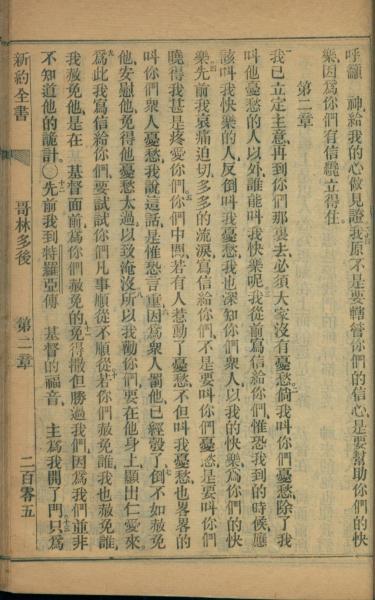 呼籲　神、給我的心做見證、我原不是要轄管你們的信心、是要幫助你們的快
樂、因為你們有信纔立得住
第二章
一我已立定主意、再到你們那裏去、必須大家沒有憂愁、二倘我叫你們憂愁、除了我
叫他憂愁的人以外、誰能叫我快樂呢、三我從前寫信給你們、惟恐我到的時候、應
該叫我快樂的人、反倒叫我憂愁、我也深知你們衆人、以我的快樂為你們的快
樂、四先前我哀痛迫切、多多的流淚、寫信給你們、不是要叫你們憂愁、是要叫你們
曉得我甚是疼愛你們、五你們中間、若有人惹動了憂愁、不但叫我憂愁、也畧畧的
叫你們衆人憂愁、我說這話、是惟恐言重、六因為衆人罰他已經彀了、七倒不如赦免
他、安慰他、免得他憂愁太過、以致淹沒、八所以我勸你們、要在他身上顯出仁愛來、
九為此我寫信給你們、要試試你們凡事順從不順從、十若你們赦免誰、我也赦免誰、
我赦免他、是在　基督面前為你們赦免的、十一免得撒但勝過我們、因為我們並非
不知道他的詭計、〇十二先前我到特羅亞傳　基督的福音、　主為我開了門、十三只為
新約全書　哥林多後　第二章　二百零五